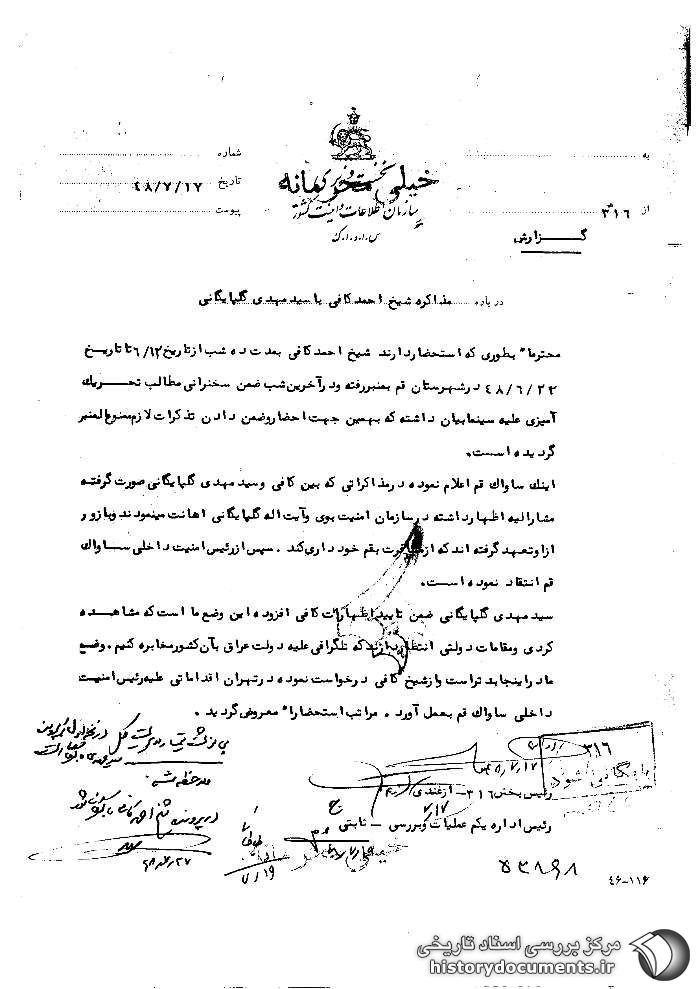 به
شماره
نخست وزیری
خیلی محرمانه
تاریخ ۴۸/۷/۱۷
سازمان اطلاعات و امنیت کشور
از ۳۱۶
پیوست
س.ا.و.ا.ک
گزارش
درباره مذاکره شیخ احمد کافی با سید مهدی گلپایگانی
محترما" بطوری که استحضار دارند شیخ احمد کافی بمدت ده شب از تاریخ ۶/۱۲ تا تاریخ
۴۸/۶/۲۲ در شهرستان قم بمنبر رفته و در آخرین شب ضمن سخنرانی مطالب تحریک
آمیزی علیه سینما بیان داشته که بهمین جهت احضار و ضمن دادن تذکرات لازم ممنوع المنبر
گردیده است.
اینک ساواک قم اعلام نموده در مذاکراتی که بین کافی و سید مهدی گلپایگانی صورت گرفته
مشارالیه اظهار داشته در سازمان امنیت بوی و آیت اله گلپایگانی اهانت مینمودند و با زور
از او تعهد گرفته اند که از بقم خودداری کند. سپس از رئیس امنیت داخلی ساواک
قم انتقاد نموده است.
سید مهدی گلپایگانی ضمن تایید اظهارات کافی افزوده این وضع ما است که مشاهده
کردی و مقامات دولتی انتظار دارند که تلگرافی علیه دولت عراق بآن کشور مخابره کنیم. وضع
ما در اینجا بدتر است و از شیخ کافی درخواست نموده در تهران اقداماتی علیه رئیس امنیت
داخلی ساواک قم بعمل آورد. مراتب استحضارا" معروض گردید.
۳۱۶
بایگانی شود
رئیس بخش ۳۱۶ - ازغندی
۷/۱۷
رئیس اداره یکم عملیات و بررسی - ثابتی
ملاحظه شد
در پرونده شیخ احمد کافی
۷/۱۹
خیلی محرمانه
۵۳۸۹۸
۴۶-۱۱۶
مرکز بررسی اسناد تاریخی
historydocuments.ir